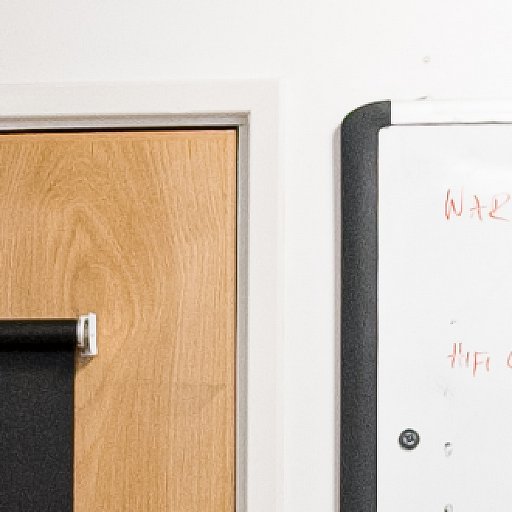 WAR
HIFI